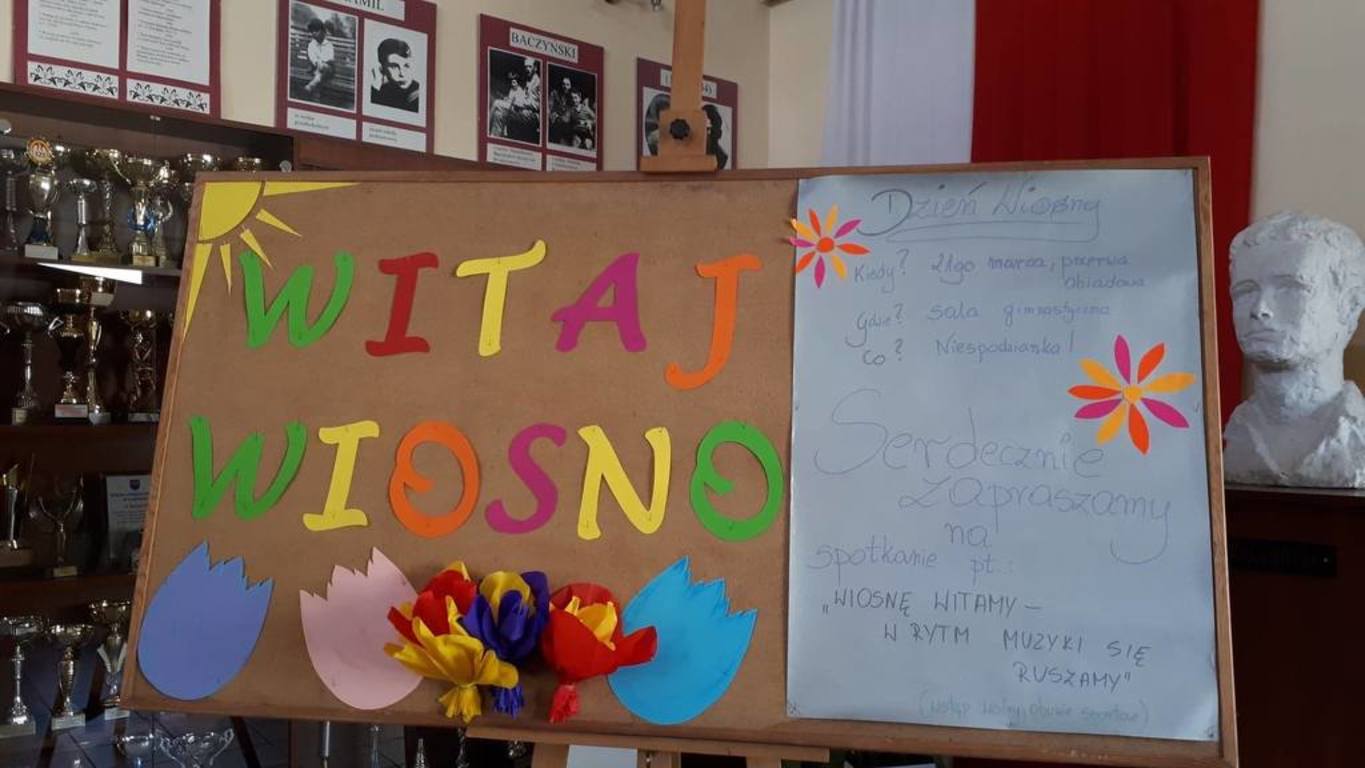 BACZYŃSKI
WITAJ
WIOSNO
Dzień Wiosny
Kiedy? 21go marca, przerwa
obiadowa
Gdzie? sala gimnastyczna
Co? Niespodzianka!
Serdecznie
zapraszamy
na
spotkanie pt.:
„WIOSNĘ WITAMY –
W RYTM MUZYKI SIĘ
RUSZAMY"
(wstęp wolny, obuwie sportow)